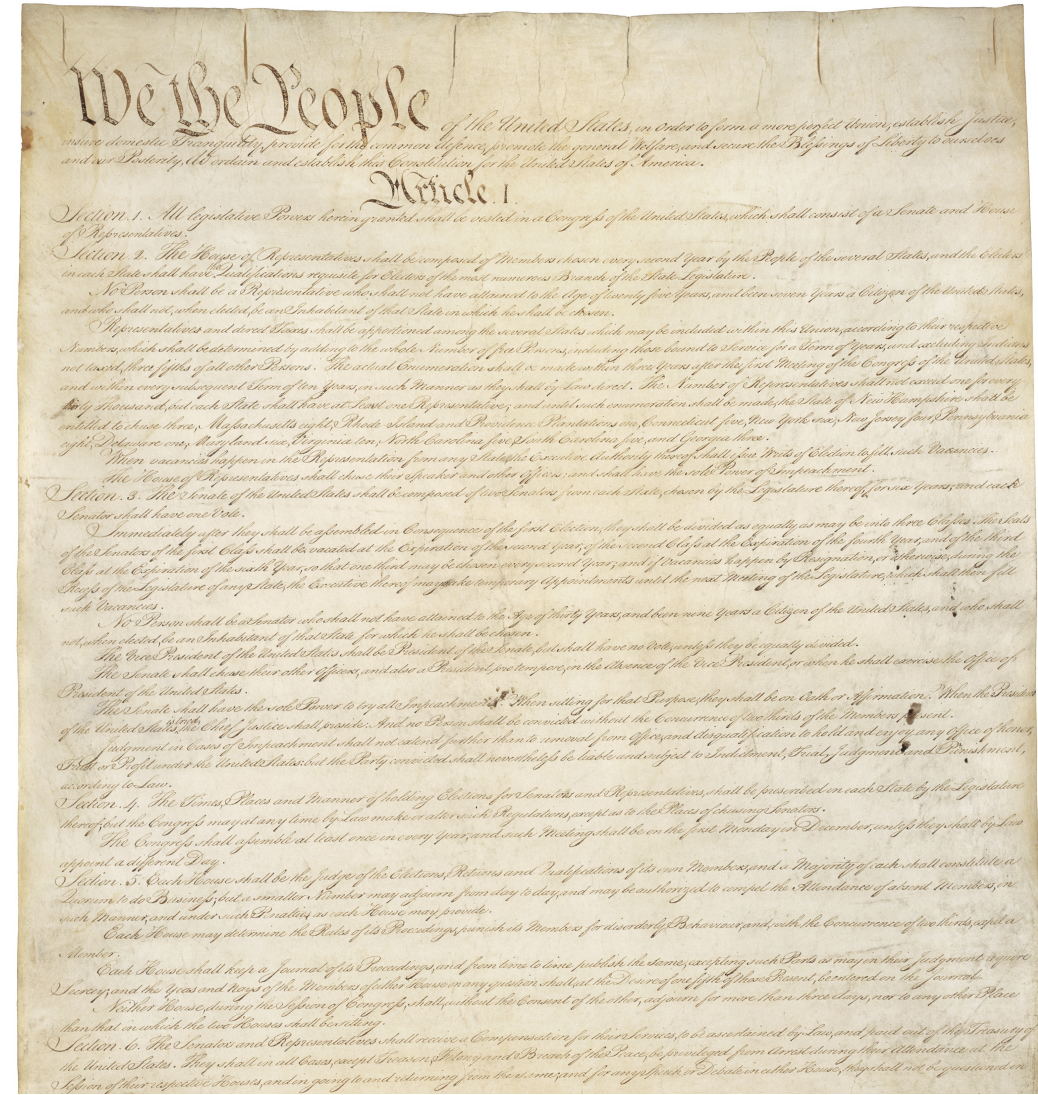 We the People of the United States, in Order to form a more perfect Union, establish Justice,
insure domestic Tranquility, provide for the common defence, promote the general Welfare, and secure the Blessings of Liberty to ourselves
and our Posterity, do ordain and establish this Constitution for the United States of America.
Article. I.
Section. 1. All legislative Powers herein granted shall be vested in a Congress of the United States, which shall consist of a Senate and House
of Representatives.
Section. 2. The House of Representatives shall be composed of Members chosen every second Year by the People of the several States, and the Electors
in each State shall have the Qualifications requisite for Electors of the most numerous Branch of the State Legislature.
No Person shall be a Representative who shall not have attained to the Age of twenty five Years, and been seven Years a Citizen of the United States,
and who shall not, when elected, be an Inhabitant of that State in which he shall be chosen.
Representatives and direct Taxes shall be apportioned among the several States which may be included within this Union, according to their respective
Numbers, which shall be determined by adding to the whole Number of free Persons, including those bound to Service for a Term of Years, and excluding Indians
not taxed, three fifths of all other Persons. The actual Enumeration shall be made within three Years after the first Meeting of the Congress of the United States,
and within every subsequent Term of ten Years, in such Manner as they shall by Law direct. The Number of Representatives shall not exceed one for every
thirty Thousand, but each State shall have at Least one Representative; and until such enumeration shall be made, the State of New Hampshire shall be
entitled to chuse three, Massachusetts eight, Rhode Island and Providence Plantations one, Connecticut five, New York six, New Jersey four, Pennsylvania
eight, Delaware one, Maryland six, Virginia ten, North Carolina five, South Carolina five, and Georgia three.
When vacancies happen in the Representation from any State, the Executive Authority thereof shall issue Writs of Election to fill such Vacancies.
The House of Representatives shall chuse their Speaker and other Officers; and shall have the sole Power of Impeachment.
Section. 3. The Senate of the United States shall be composed of two Senators from each State, chosen by the Legislature thereof, for six Years; and each
Senator shall have one Vote.
Immediately after they shall be assembled in Consequence of the first Election, they shall be divided as equally as may be into three Classes. The Seats
of the Senators of the first Class shall be vacated at the Expiration of the second Year, of the second Class at the Expiration of the fourth Year, and of the third
Class at the Expiration of the sixth Year, so that one third may be chosen every second Year; and if Vacancies happen by Resignation, or otherwise, during the
Recess of the Legislature of any State, the Executive thereof may make temporary Appointments until the next Meeting of the Legislature, which shall then fill
such Vacancies.
No Person shall be a Senator who shall not have attained to the Age of thirty Years, and been nine Years a Citizen of the United States, and who shall
not, when elected, be an Inhabitant of that State for which he shall be chosen.
The Vice President of the United States shall be President of the Senate, but shall have no Vote, unless they be equally divided.
The Senate shall chuse their other Officers, and also a President pro tempore, in the Absence of the Vice President, or when he shall exercise the Office of
President of the United States.
The Senate shall have the sole Power to try all Impeachments. When sitting for that Purpose, they shall be on Oath or Affirmation. When the President
of the United States is tried, the Chief Justice shall preside: And no Person shall be convicted without the Concurrence of two thirds of the Members present.
Judgment in Cases of Impeachment shall not extend further than to removal from Office, and disqualification to hold and enjoy any Office of honor,
Trust or Profit under the United States: but the Party convicted shall nevertheless be liable and subject to Indictment, Trial, Judgment and Punishment,
according to Law.
Section. 4. The Times, Places and Manner of holding Elections for Senators and Representatives, shall be prescribed in each State by the Legislature
thereof; but the Congress may at any time by Law make or alter such Regulations, except as to the Places of chusing Senators.
The Congress shall assemble at least once in every Year, and such Meeting shall be on the first Monday in December, unless they shall by Law
appoint a different Day.
Section. 5. Each House shall be the Judge of the Elections, Returns and Qualifications of its own Members, and a Majority of each shall constitute a
Quorum to do Business; but a smaller Number may adjourn from day to day, and may be authorized to compel the Attendance of absent Members, in
such Manner, and under such Penalties as each House may provide.
Each House may determine the Rules of its Proceedings, punish its Members for disorderly Behaviour, and, with the Concurrence of two thirds, expel a
Member.
Each House shall keep a Journal of its Proceedings, and from time to time publish the same, excepting such Parts as may in their Judgment require
Secrecy; and the Yeas and Nays of the Members of either House on any question shall, at the Desire of one fifth of those Present, be entered on the Journal.
Neither House, during the Session of Congress, shall, without the Consent of the other, adjourn for more than three days, nor to any other Place
than that in which the two Houses shall be sitting.
Section. 6. The Senators and Representatives shall receive a Compensation for their Services, to be ascertained by Law, and paid out of the Treasury of
the United States. They shall in all Cases, except Treason, Felony and Breach of the Peace, be privileged from Arrest during their Attendance at the
Session of their respective Houses, and in going to and returning from the same; and for any Speech or Debate in either House, they shall not be questioned in